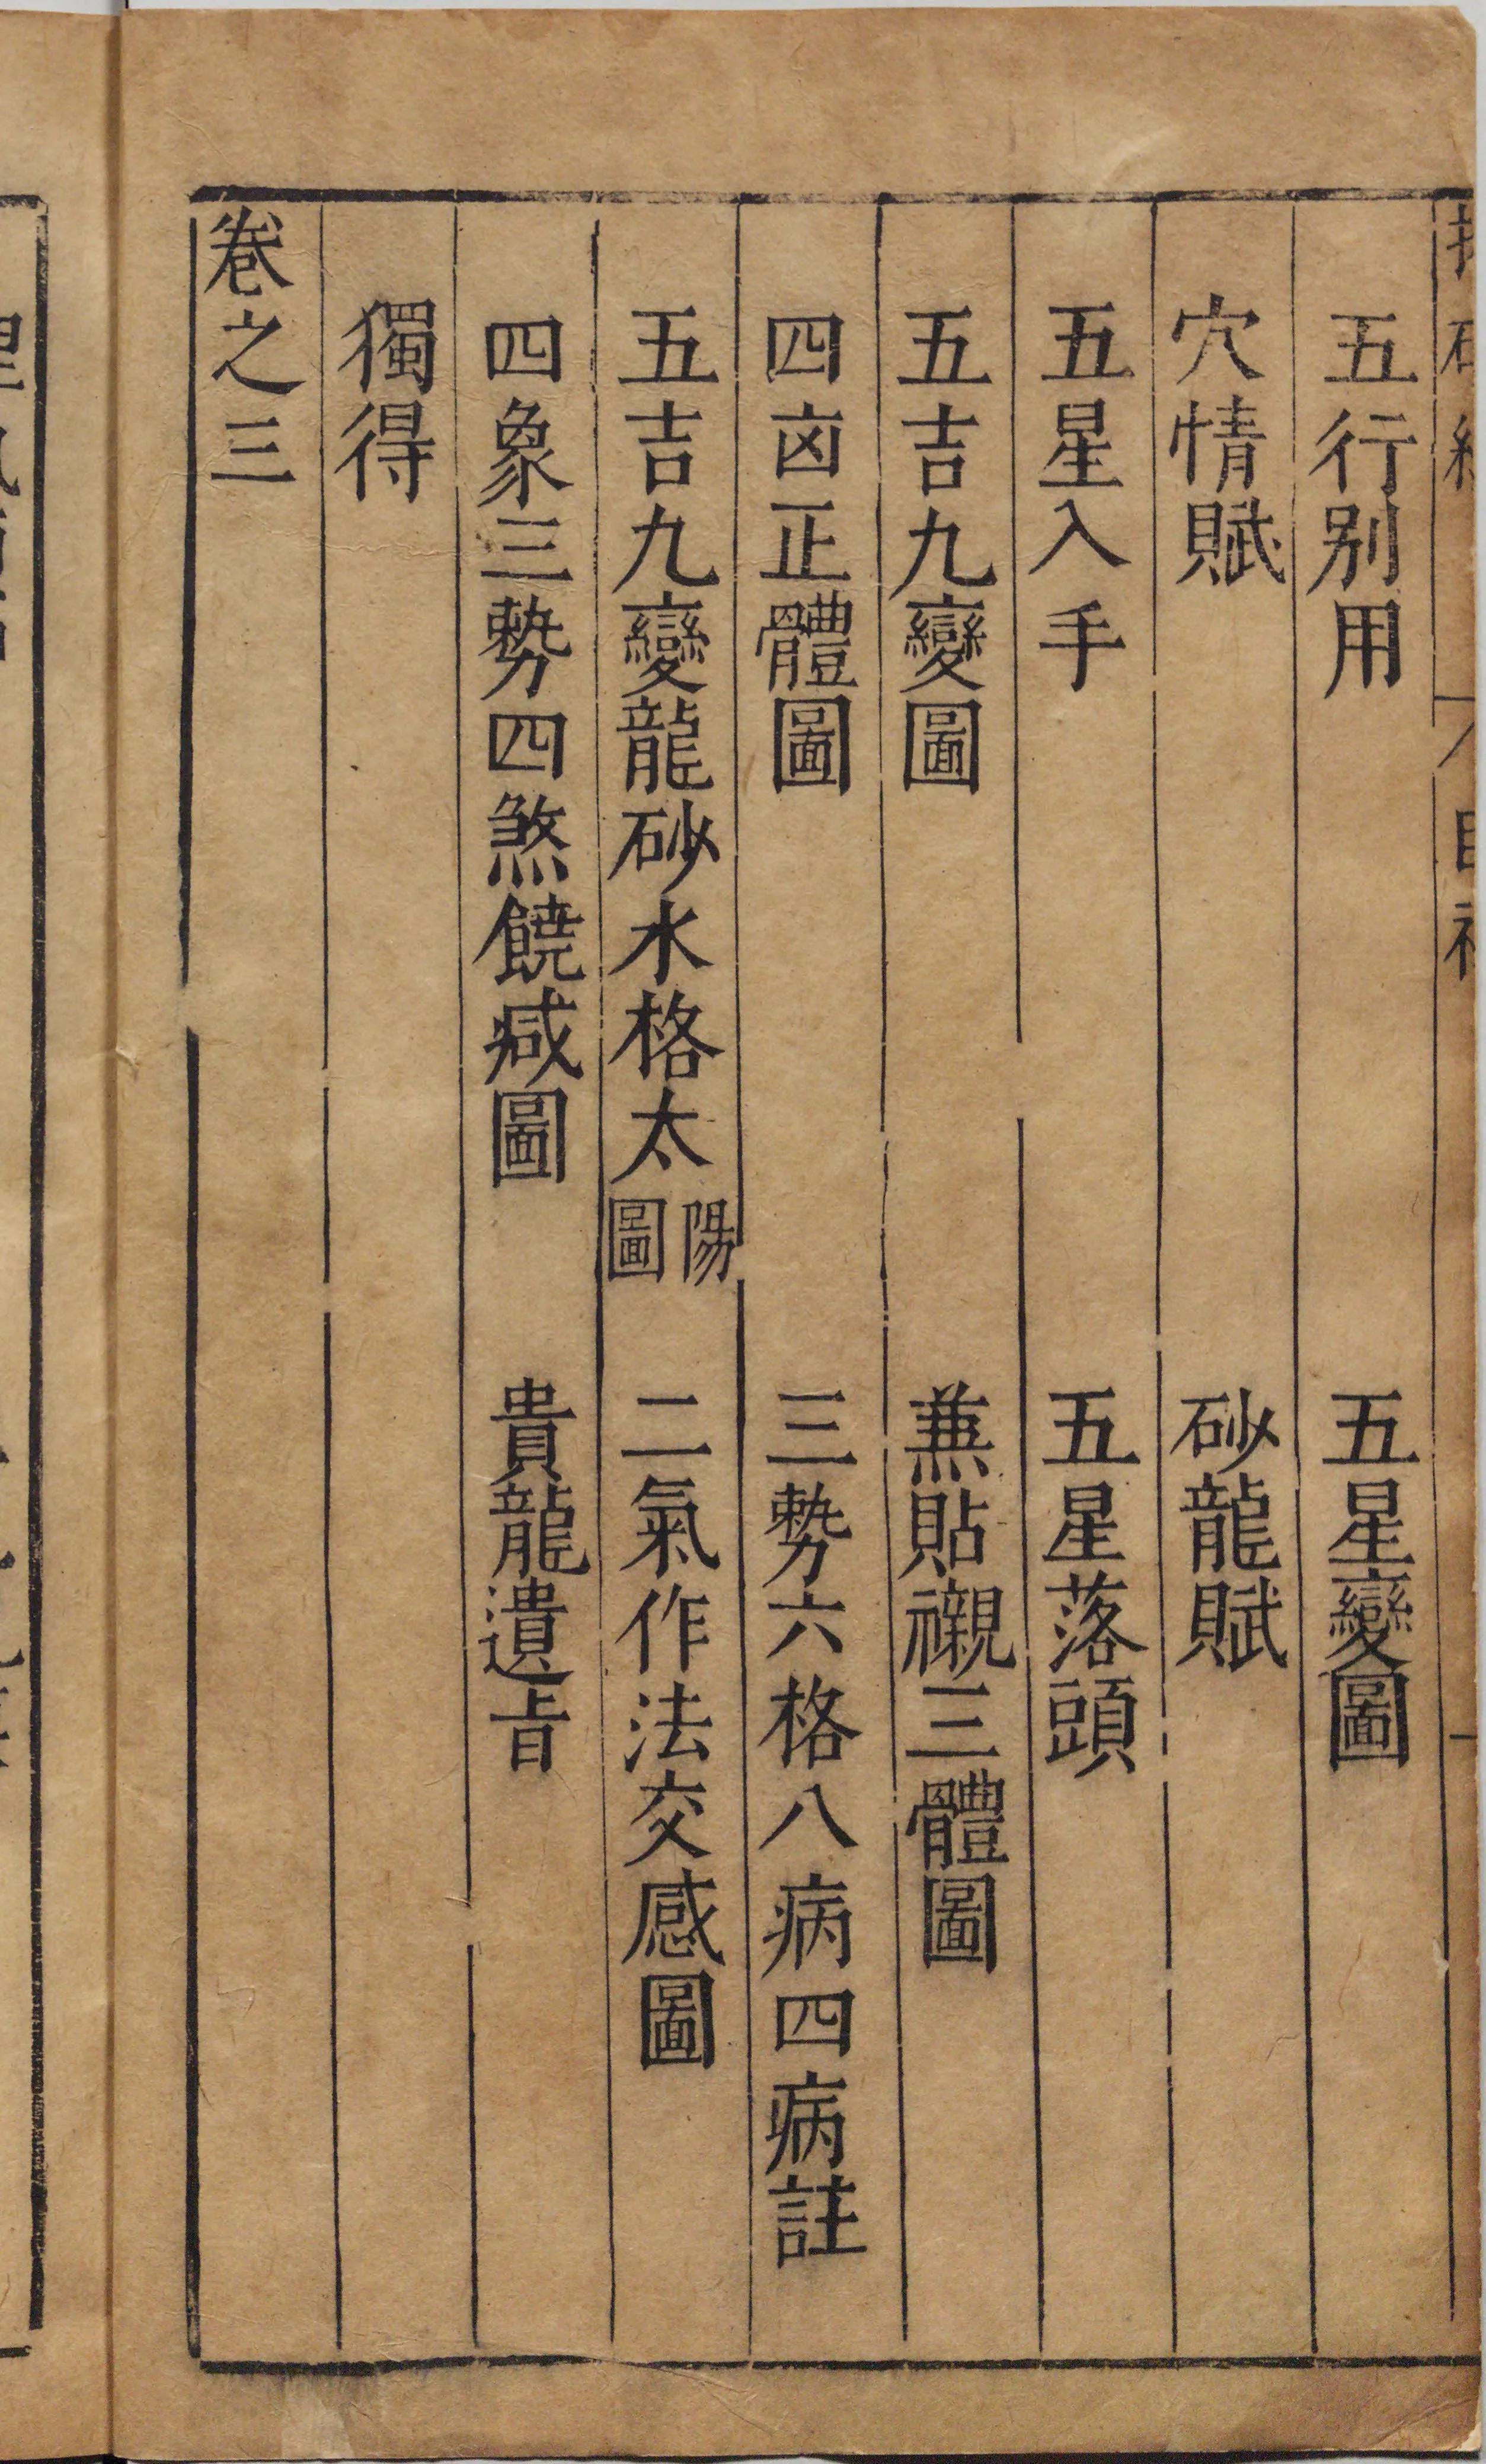 五行别用　五星變圖
穴情賦　砂龍賦
五星入手　五星落頭
五吉九變圖　兼貼襯三體圖
四卤正體圖　三勢六格八病四病註
五吉九變龍砂水格太陽圖　二氣作法交感圖
四象三勢四煞饒减圖　貴龍遺旨
獨得
卷之三